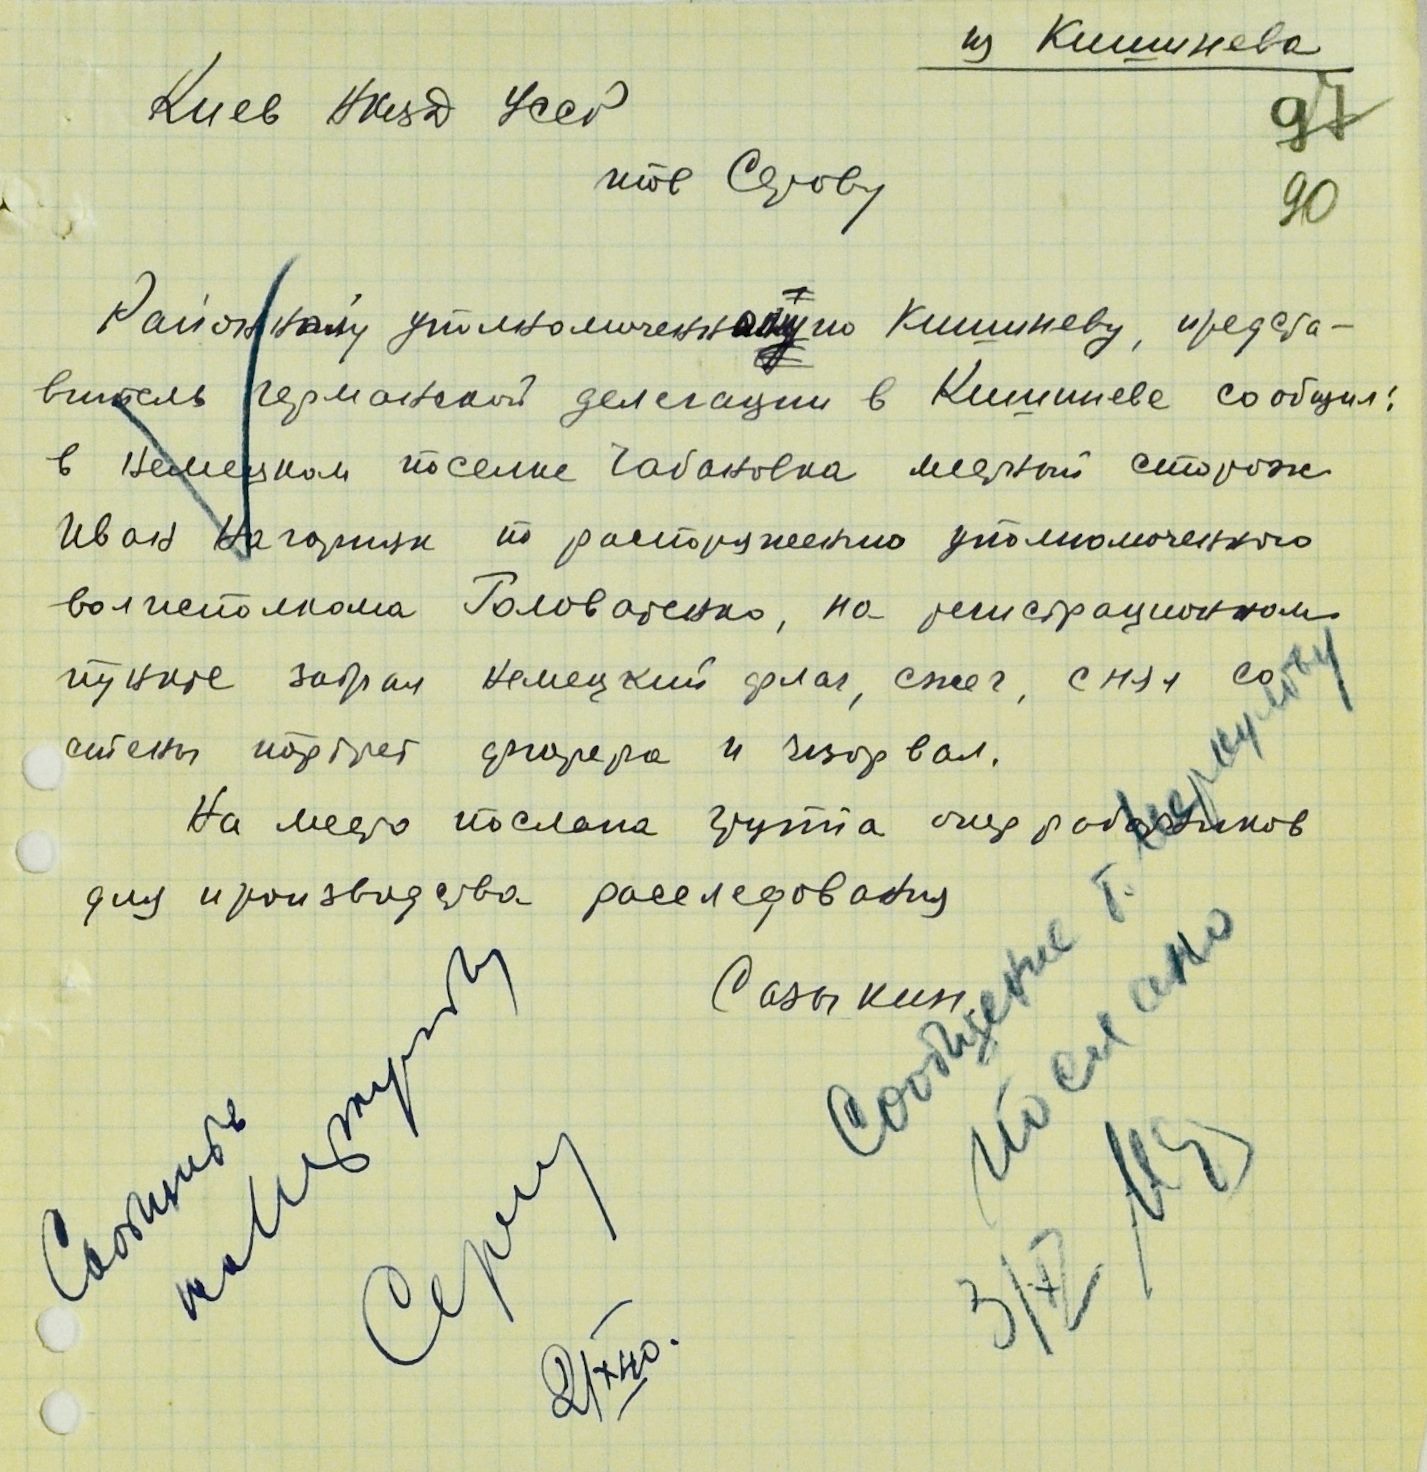 из Кишинева
97
Киев НКВД УССР
90
тов Серову
Районному уполномоченному по Кишиневу, предста-
витель германской делегации в Кишиневе сообщил:
в немецком поселке Чабановка местный сторож
Иван Нагорняк по распоряжению уполномоченного
волисполкома Головатенко, на регистрационном
пункте забрал немецкий флаг, сжег, снял со
стены портрет фюрера и изорвал.
На место послана группа оперработников
для производства расследования
Сазыкин
Сообщение т. Меркулову
послано
3/X
Сообщить
Серов
2/X 40.